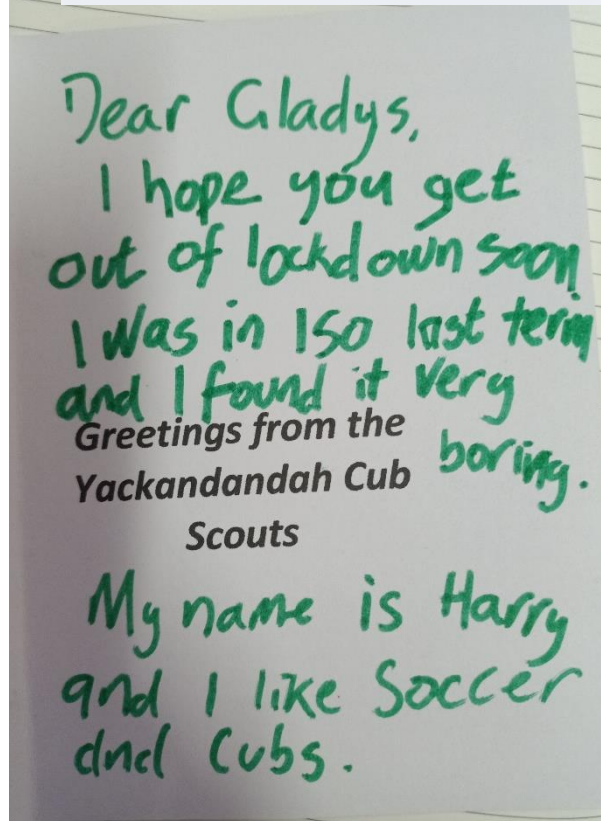 Dear Gladys,
I hope you get
out of lockdown soon
I was in ISO last term
and I found it very
boring.
Greetings from the
Yackandandah Cub
Scouts
My name is Harry
and I like Soccer
and Cubs.